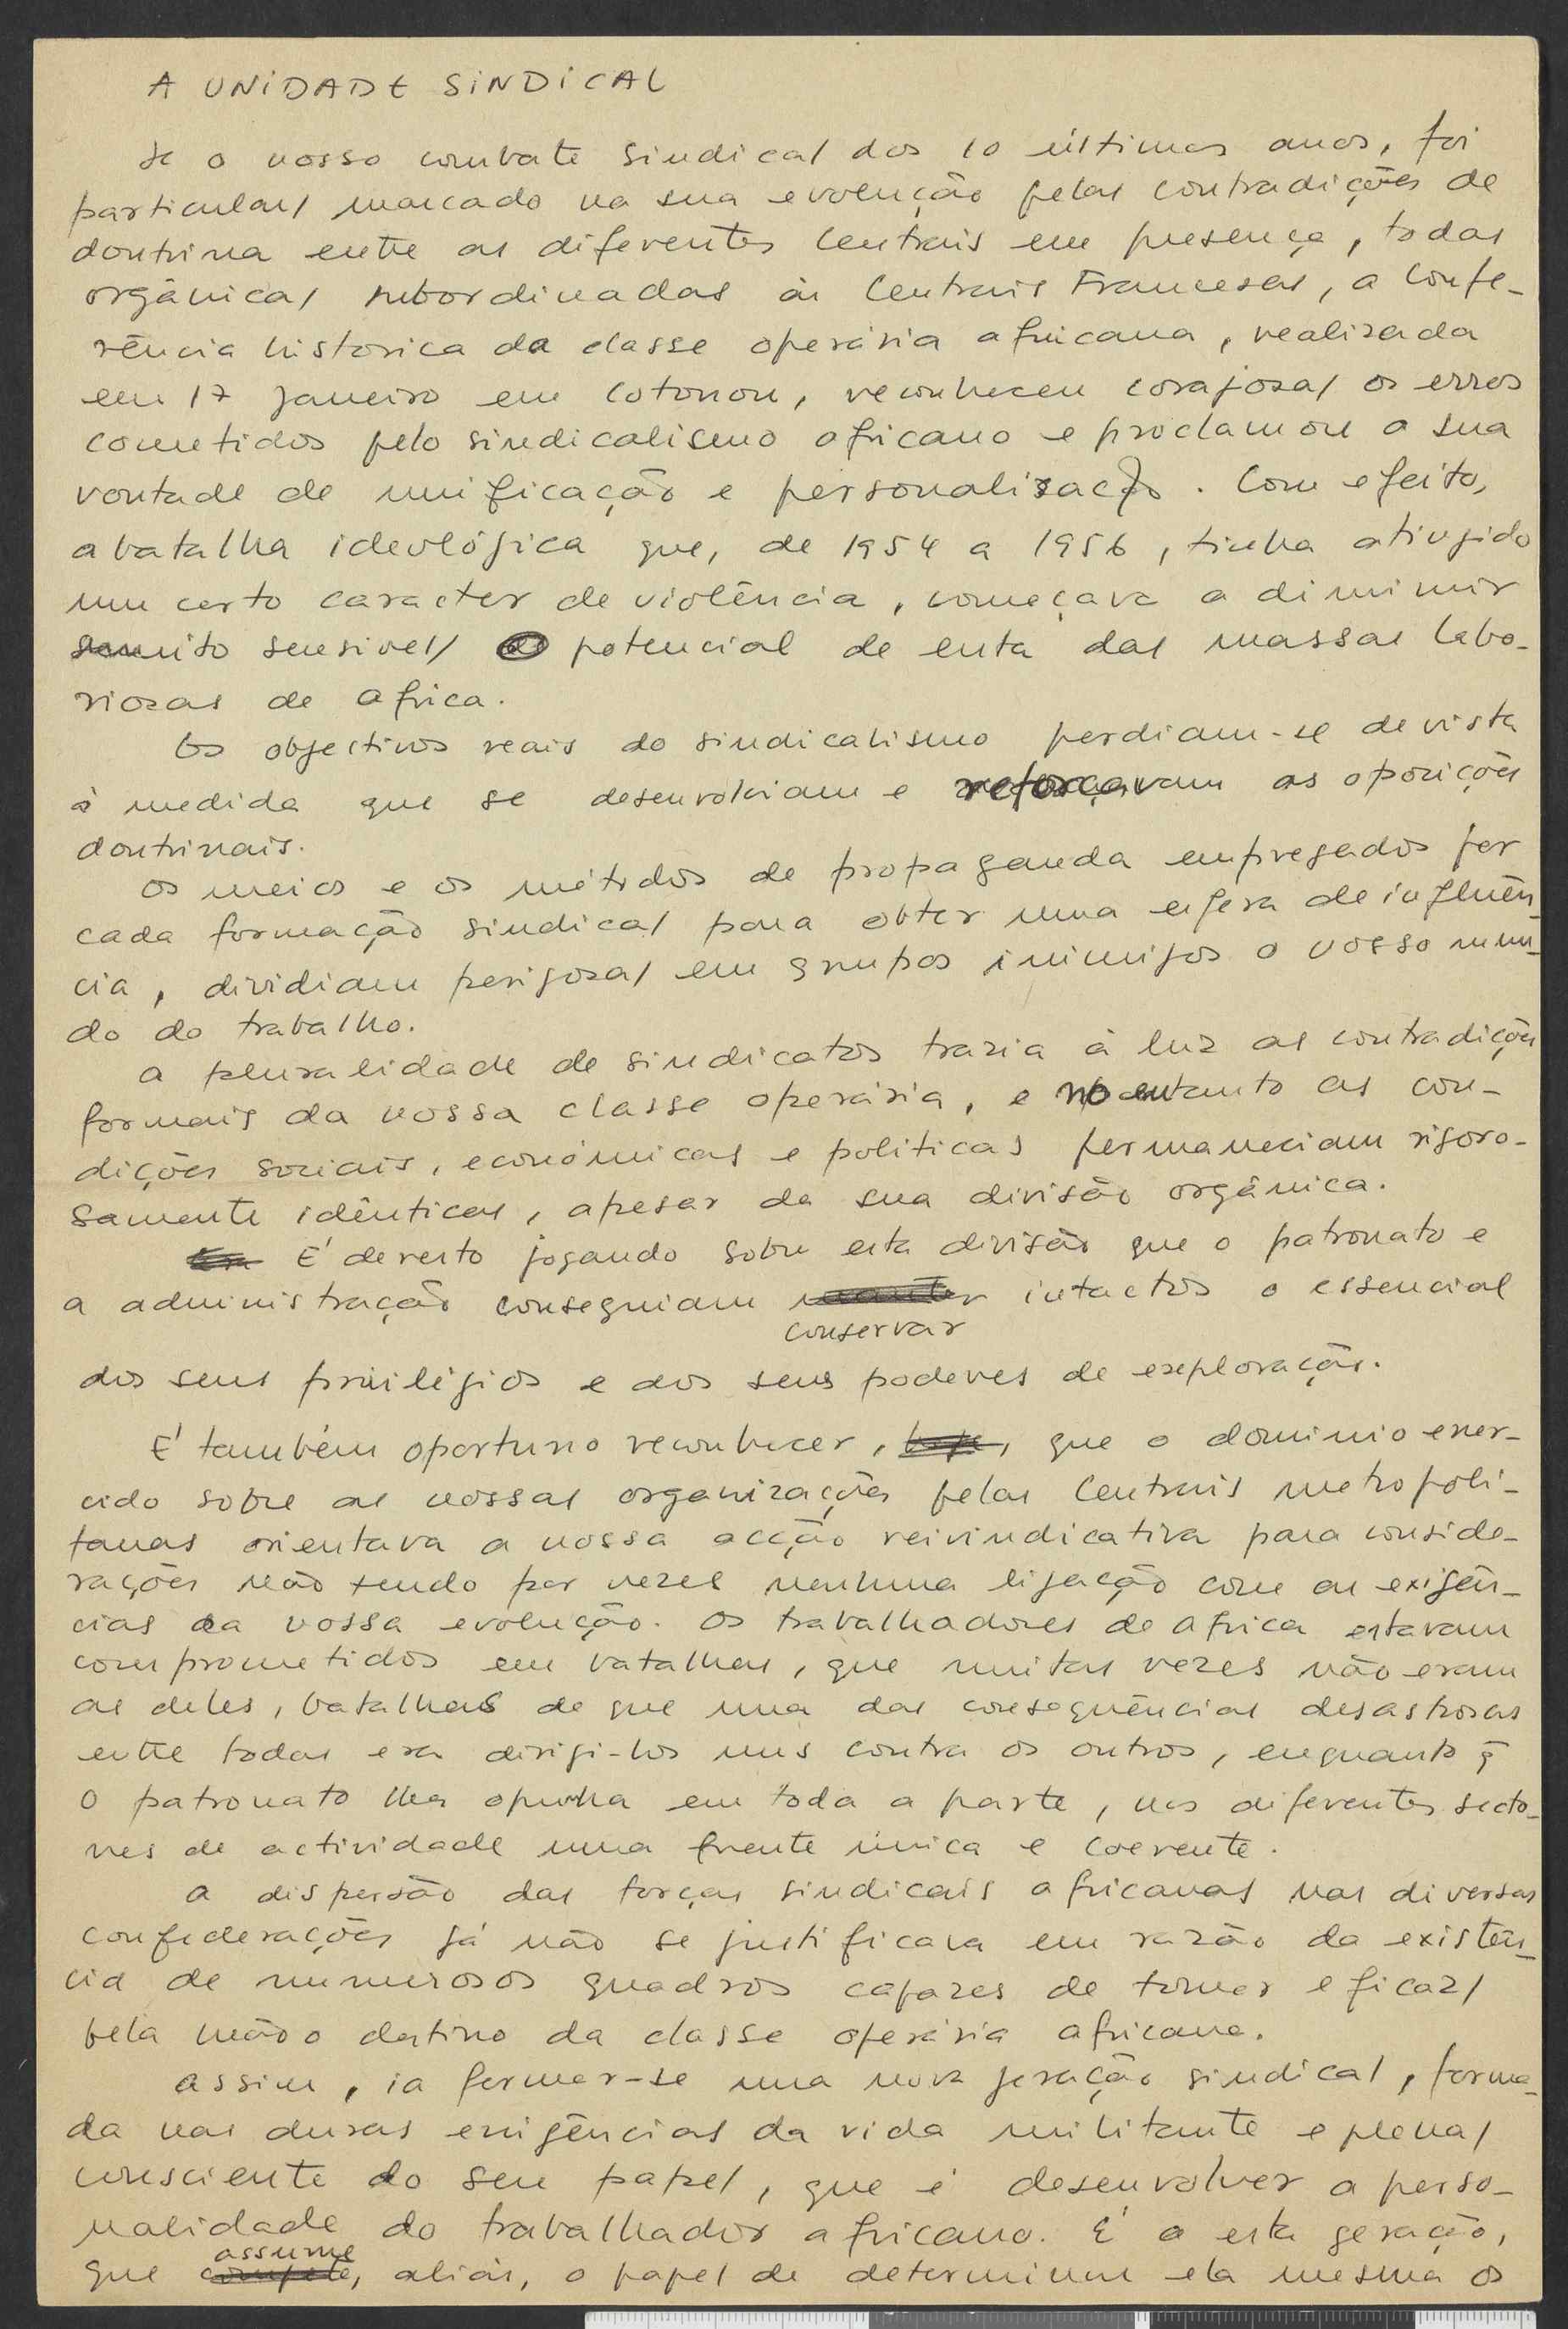 A UNIDADE SINDICAL
Se o nosso combate sindical dos 10 últimos anos, foi
particular/ marcado na sua evolução pelas contradições de
doutrina entre as diferentes Centrais em presença, todas
orgânica/ subordinadas às Centrais Francesas, a Confe-
rência historica da classe operária africana, realizada
em 17 Janeiro em Cotonou, reconheceu corajosa/ os erros
cometidos pelo sindicalismo africano e proclamou a sua
vontade de unificação e personalização. Com efeito,
a batalha ideológica que, de 1954 a 1956, tinha atingido
um certo caracter de violência, começava a diminuir
muito sensivel/ o potencial de luta das massas labo-
riosas de Africa.
Os objectivos reais do sindicalismo perdiam-se de vista
à medida que se desenvolviam e reforçavam as oposições
doutrinais.
Os meios e os métodos de propaganda empregados por
cada formação sindical para obter uma esfera de influên-
cia, dividiam perigosa/ em grupos inimigos o nosso mun-
do do trabalho.
A pluralidade de sindicatos trazia à luz as contradições
formais da nossa classe operária, e no entanto as con-
dições sociais, económicas e politicas permaneciam rigoro-
samente idênticas, apesar da sua divisão orgânica.
É de resto jogando sobre esta divisão que o patronato e
a administração conseguiam manter intactos o essencial
conservar
dos seus privilégios e dos seus poderes de exploração.
É também oportuno reconhecer, hoje, que o dominio exer-
cido sobre as nossas organizações pelas Centrais metropoli-
tanas orientava a nossa acção reivindicativa para conside-
rações não tendo por vezes nenhuma ligação com as exigên-
cias da nossa evolução. Os trabalhadores de Africa estavam
comprometidos em batalhas, que muitas vezes não eram
as deles, batalhas de que uma das consequências desastrosas
entre todas era dirigi-los uns contra os outros, enquanto q̃
o patronato lhes opunha em toda a parte, nos diferentes secto-
res de actividade uma frente única e coerente.
A dispersão das forças sindicais africanas nas diversas
confederações já não se justificava em razão da existên-
cia de numerosos quadros capazes de tomar eficaz/
pela mão o destino da classe operária africana.
Assim, ia formar-se uma nova geração sindical, forma-
da nas duras exigências da vida militante e plena/
consciente do seu papel, que é desenvolver a perso-
nalidade do trabalhador africano. É a esta geração,
assume
que compete, aliás, o papel de determinar ela mesma os